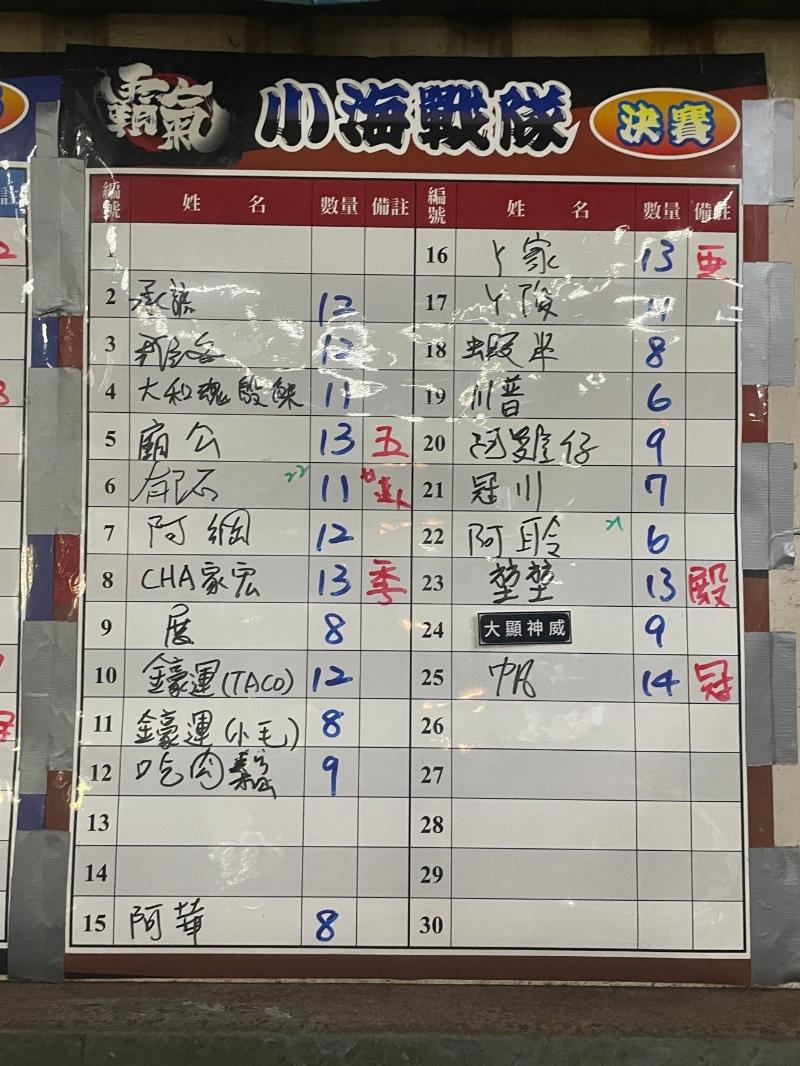 霸氣 小海戰隊 決賽
編號 姓名 數量 備註 編號 姓名 數量 備註
1
2 承諺 12
3 12
4 大和魂殷傑 11
5 廟公 13 五
6 11
7 阿綱 12
8 CHA家宏 13 季
9 展 8
10 鑫豪運(TACO) 12
11 鑫豪運(小毛) 8
12 吃肉 9
13
14
15 阿華 8
16 丫家 13 亞
17 丫險 11
18 蝦米 8
19 川普 6
20 阿雞仔 9
21 冠川 7
22 阿聆 6
23 堃堃 13 殿
24 大顯神威 9
25 帆 14 冠
26
27
28
29
30